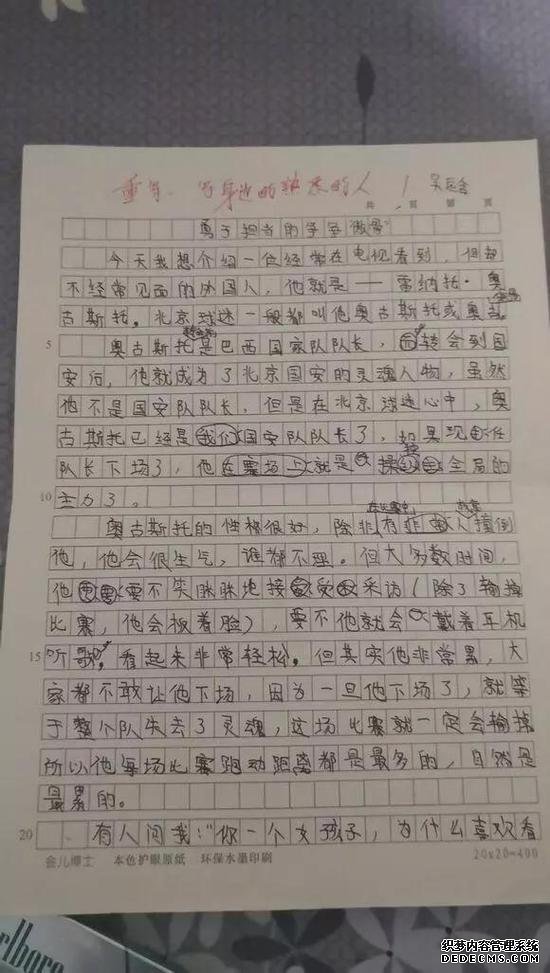 重写、写身边的熟悉的人
共 页 第 页
勇于担当的争争傲骨
今天我想介绍一位经常在电视看到,但却
不经常见面的外国人,他就是——雷纳托·奥
古斯托。北京球迷一般都叫他奥古斯托或奥古
5 奥古斯托是巴西国家队队长,转会到国
安后,他就成为了北京国安的灵魂人物,虽然
他不是国安队队长,但是在北京球迷心中,奥
古斯托已经是我们国安队队长了,如果现任
队长下场了,他在赛场上就是操全局的
10 主力了。
奥古斯托的性格很好,除非有人撞倒
他,他会很生气,谁都不理。但大多数时间,
他要不笑眯眯地接受采访(除了输掉
比赛,他会板着脸),要不他就会戴着耳机
15 听歌。看起来非常轻松。但其实他非常累,大
家都不敢让他下场,因为一旦他下场了,就等
于整个队失去了灵魂,这场比赛就一定会输掉
所以他每场比赛跑动距离都是最多的,自然是
最累的。
20 有人问我:“你一个女孩子,为什么喜欢看
金儿博士 本色护眼原纸 环保水墨印刷 20×20=400
织梦内容管理系统
DEDECMS.COM
rlboro